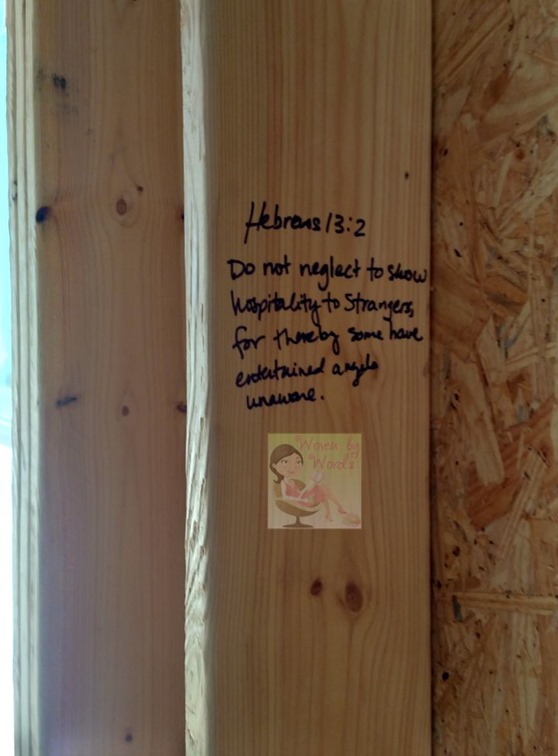 Hebrews 13:2
Do not neglect to show
hospitality to Strangers,
for thereby some have
entertained angels
unaware.
"Woven by
Words"